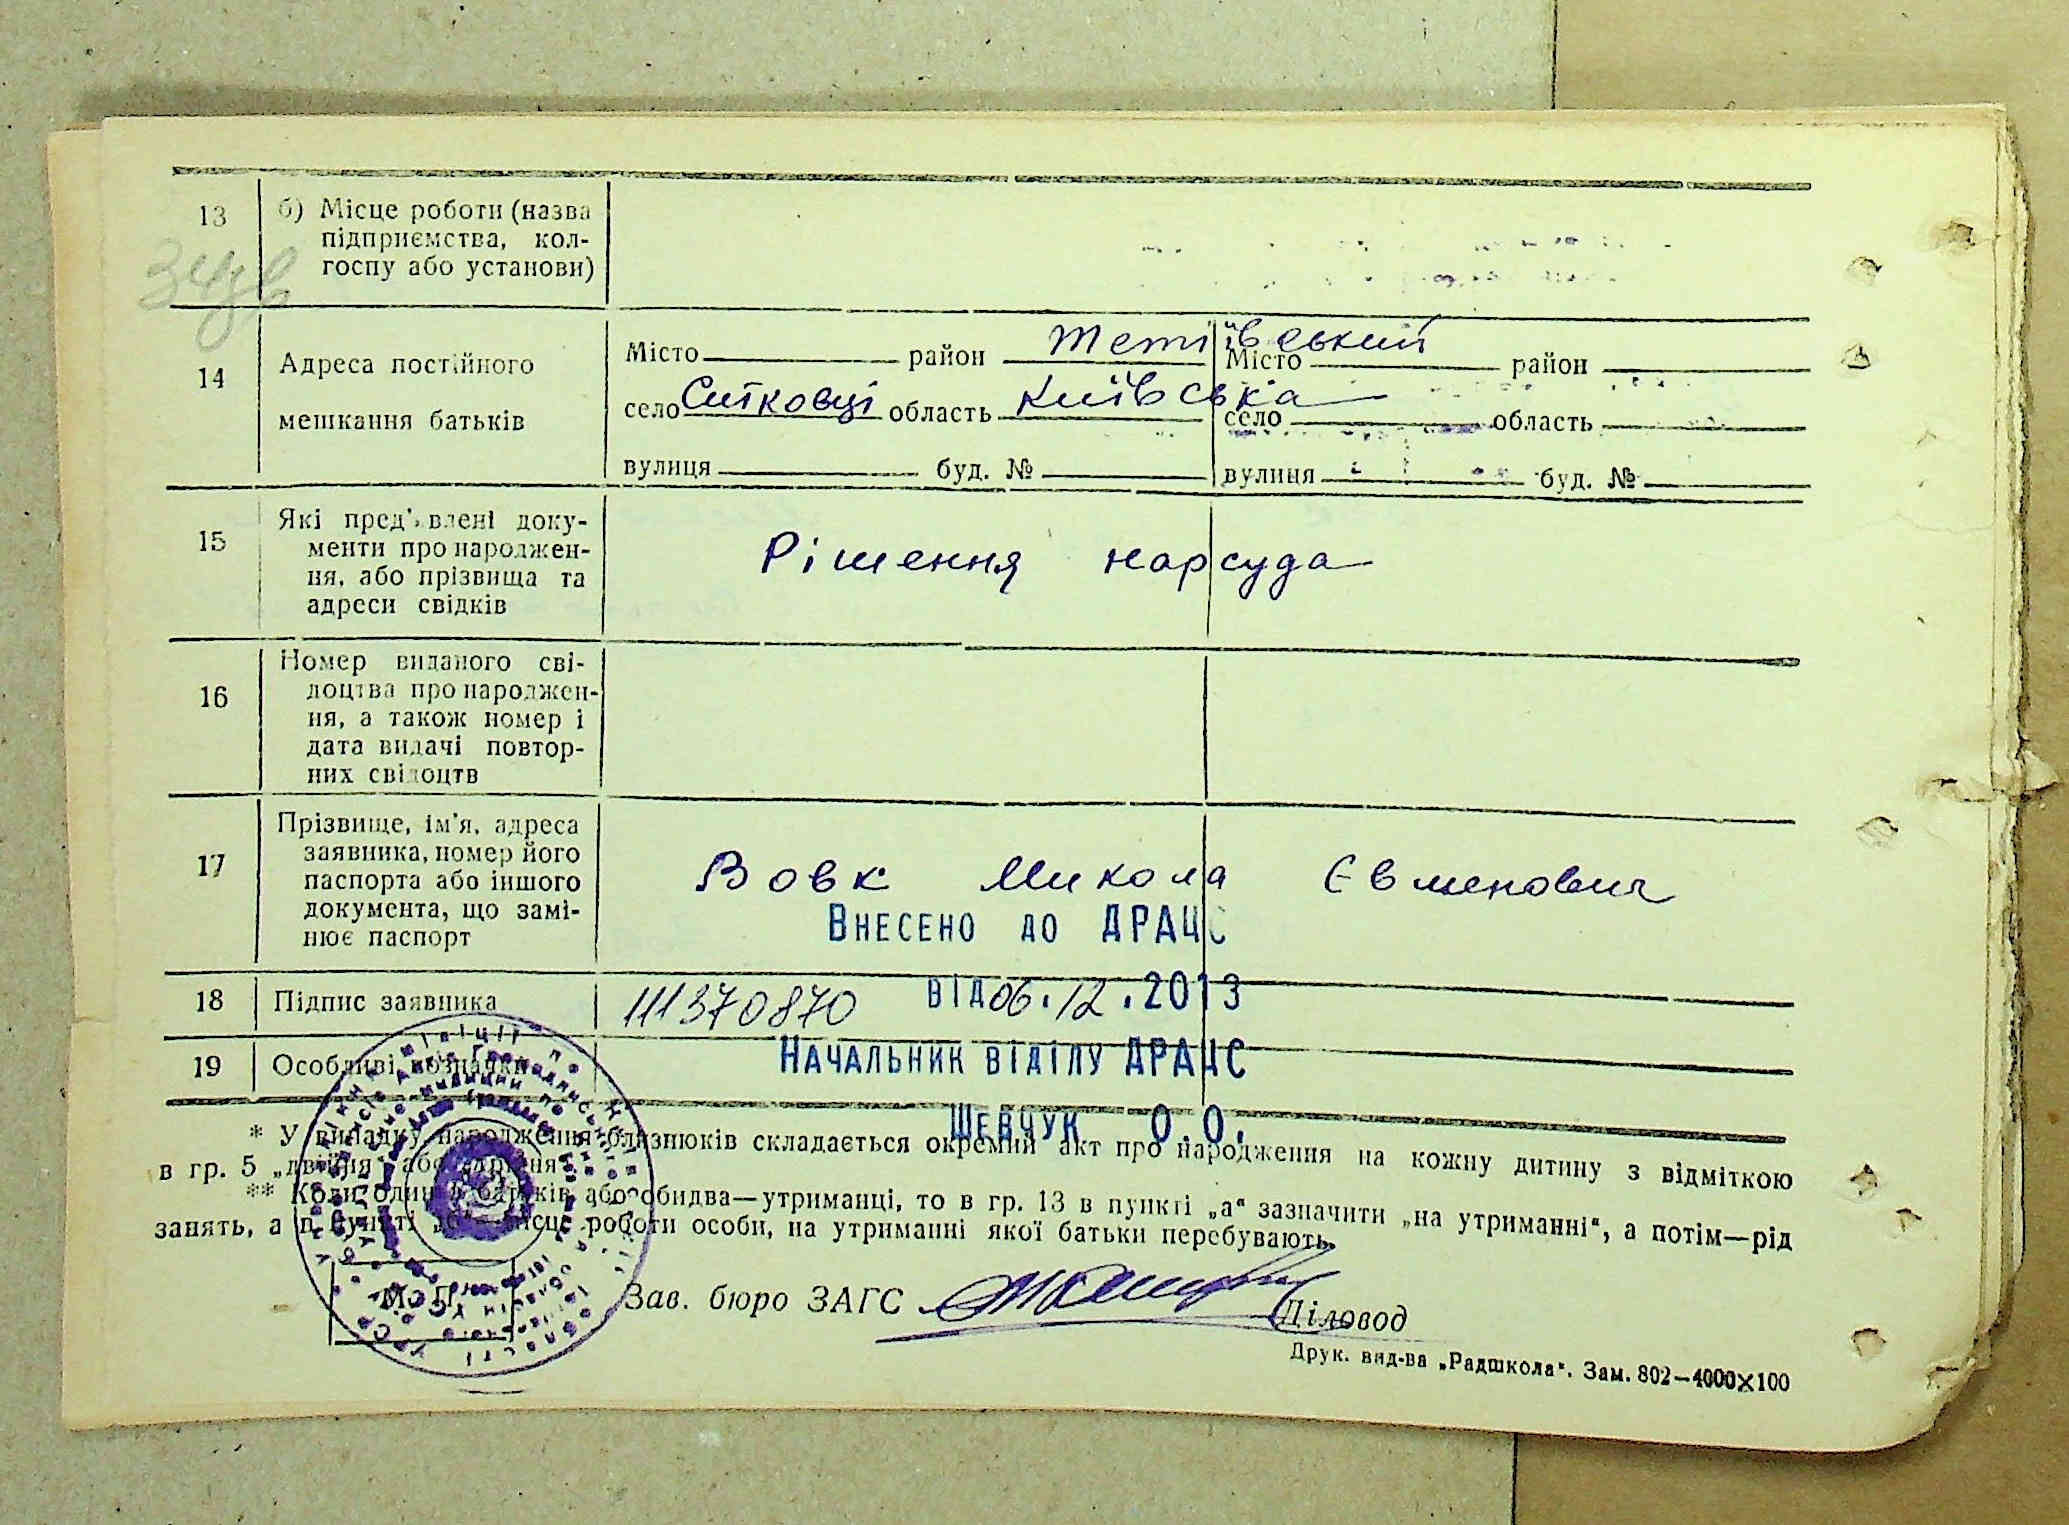 13 б) Місце роботи (назва
підприємства, кол-
госпу або установи)
14 Адреса постійного
мешкання батьків
Місто район Тетіївський Місто район
село Ситковці область Київська село область
вулиця буд. № вулиця буд. №
15 Які пред'явлені доку-
менти про народжен-
ня, або прізвища та
адреси свідків
Рішення нарсуда
16 Номер виданого сві-
доцтва про народжен-
ня, а також номер і
дата видачі повтор-
них свідоцтв
17 Прізвище, ім'я, адреса
заявника, номер його
паспорта або іншого
документа, що замі-
нює паспорт
Вовк Микола Євменович
Внесено до ДРАЦС
18 Підпис заявника 111370870 від 06.12.2013
19 Особливі позначки
Начальник відділу ДРАЦС
Шевчук О.О.
* У випадку народження близнюків складається окремий акт про народження на кожну дитину з відміткою
в гр. 5 „двійня" або „трійня".
** Коли один з батьків або обидва—утриманці, то в гр. 13 в пункті „а" зазначити „на утриманні", а потім—рід
занять, а в пункті „б" місце роботи особи, на утриманні якої батьки перебувають.
М. П.
Зав. бюро ЗАГС
Діловод
Друк. вид-ва „Радшкола". Зам. 802—4000×100